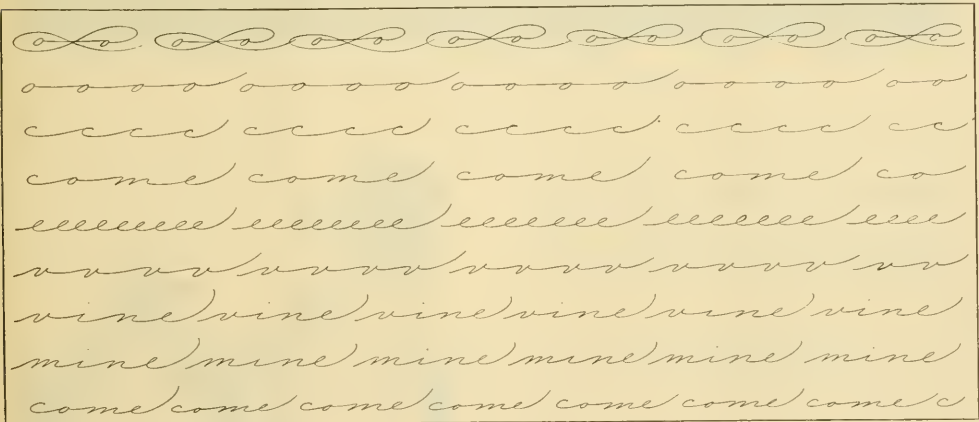 o o o o o o o o o o o o o o
o o o o o o o o o o o o o o o o o o
c c c c c c c c c c c c c c c c c c
come come come come co
eeeeeeeee eeeeeeee eeeeeee eeeeeee eeee
v v v v v v v v v v v v v v v v v v
vine vine vine vine vine vine
mine mine mine mine mine mine
come come come come come come come c